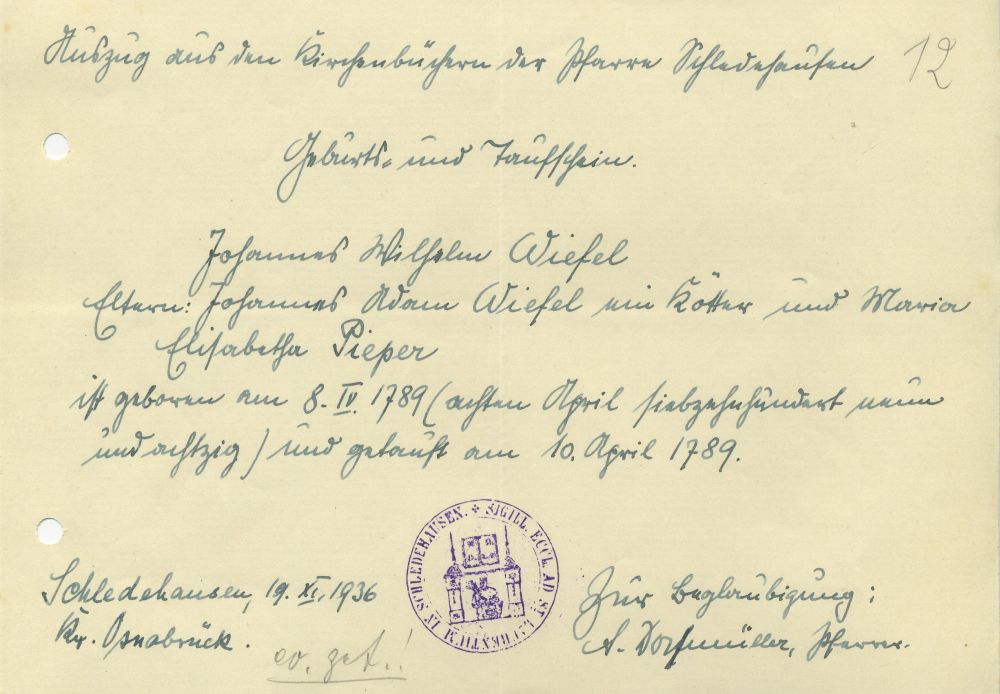 Auszug aus den Kirchenbüchern der Pfarre Schledehausen
12
Geburts- und Taufschein.
Johannes Wilhelm Wiesel
Eltern: Johannes Adam Wiesel ein Kötter und Maria
Elisabetha Pieper
ist geboren am 8. IV. 1789 (achten April siebzehnhundert neun
und achtzig) und getauft am 10. April 1789.
SIGILL. ECCL. AD ST. LAURENTIUM IN SCHLEDEHAUSEN.
Schledehausen, 19. XI. 1936
Kr. Osnabrück.
ev. get.!
Zur Beglaubigung:
A. Dorfmüller, Pfarrer.